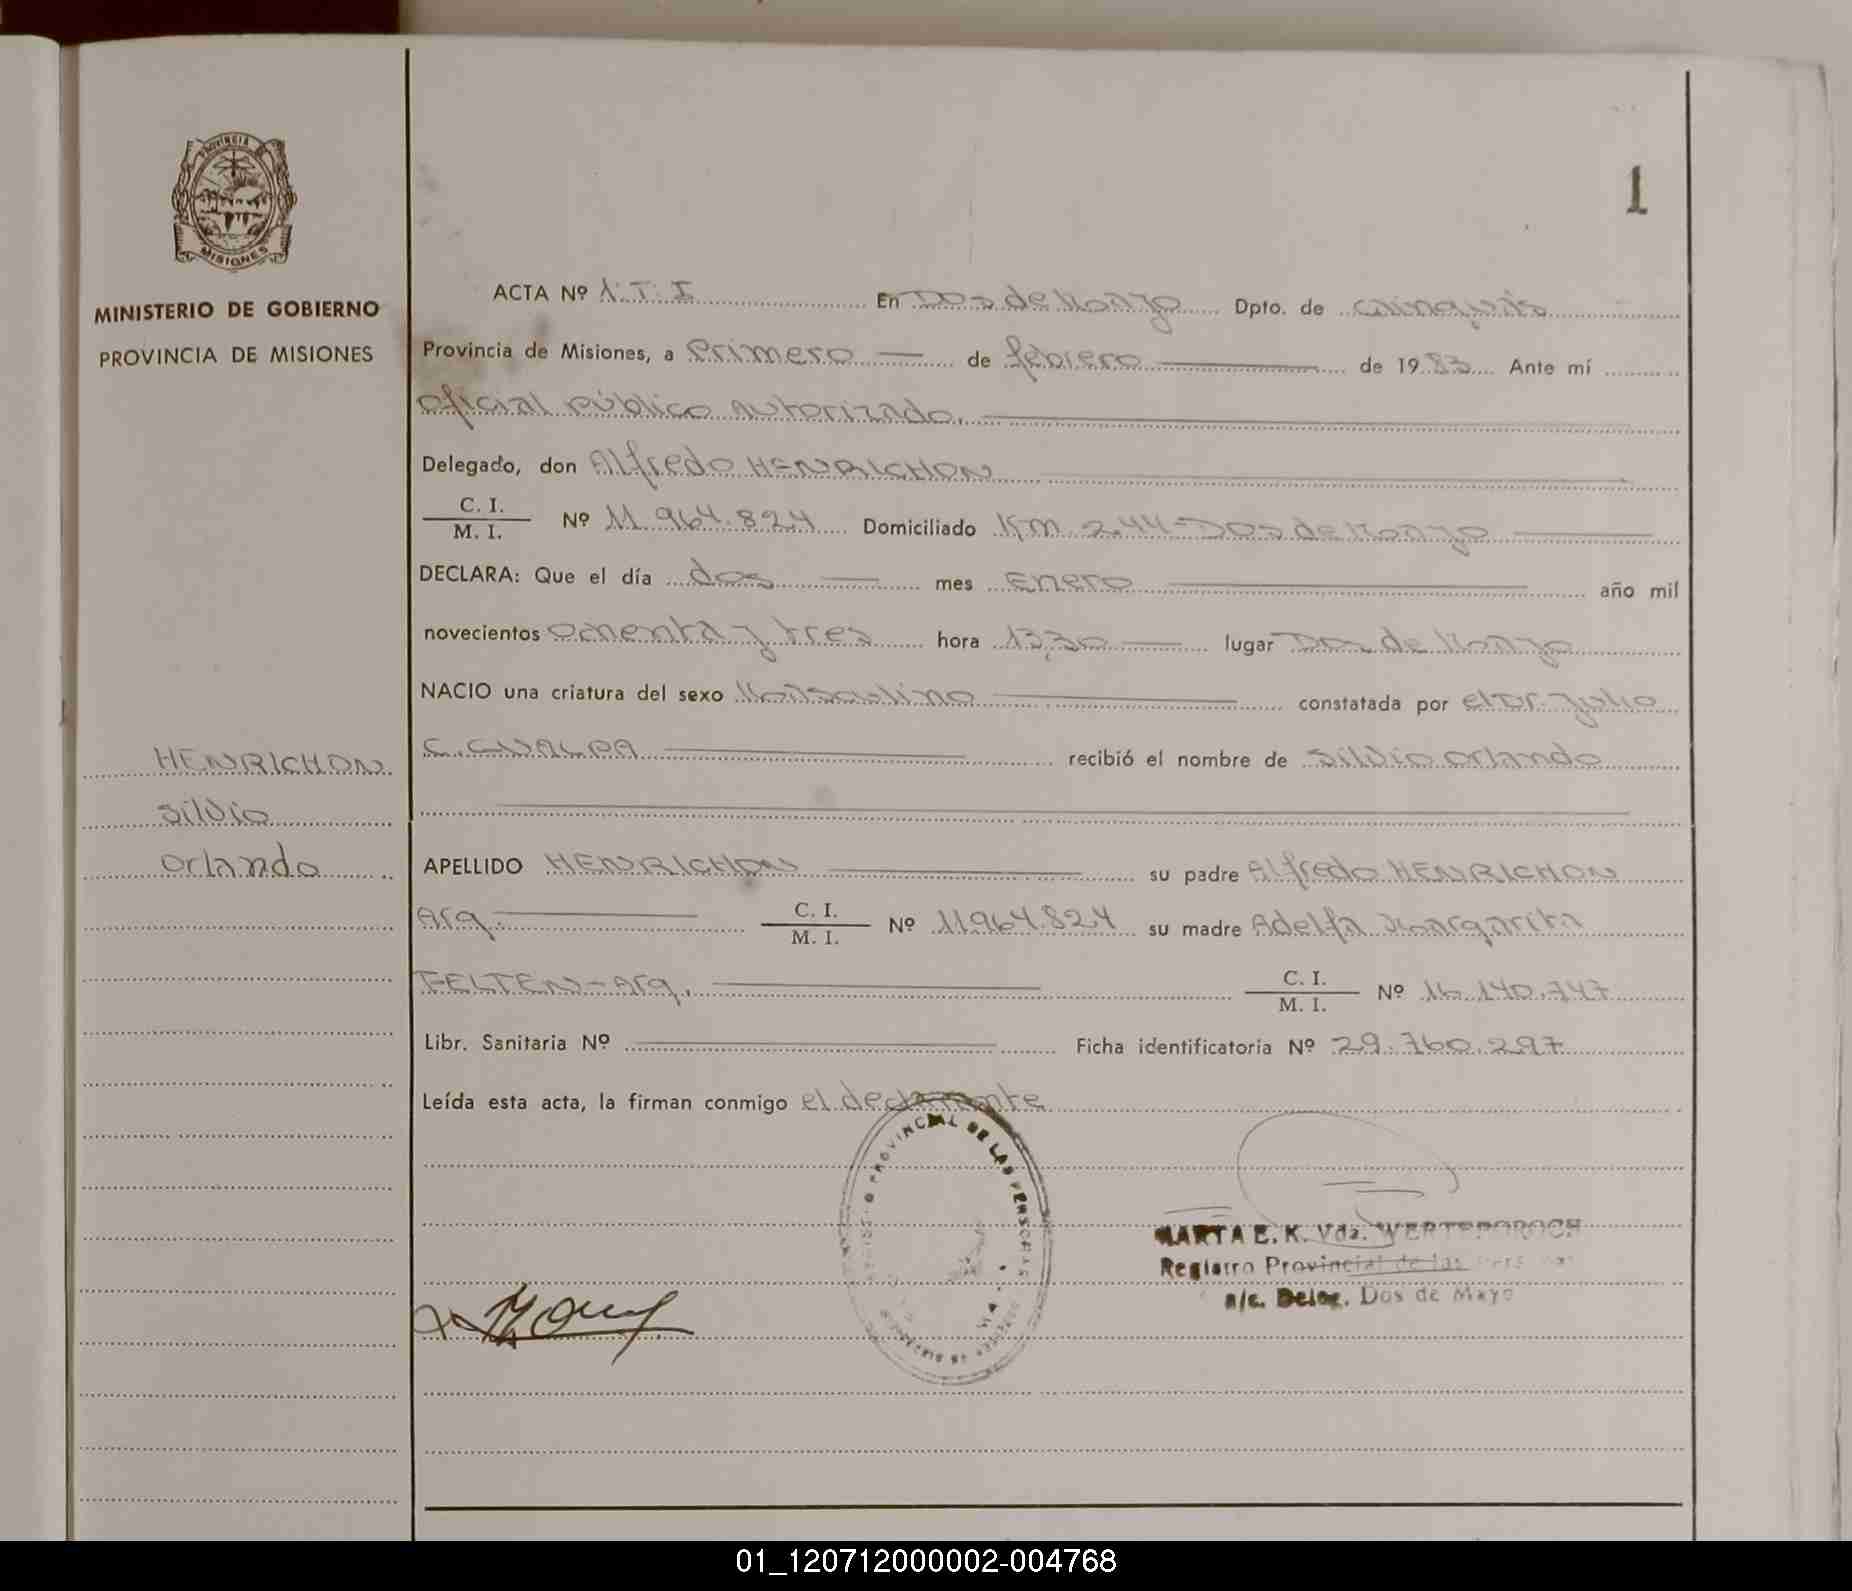 PROVINCIA DE
MISIONES
MINISTERIO DE GOBIERNO
PROVINCIA DE MISIONES
HENRICHON
Silvio
Orlando
1
ACTA Nº 1·T·I En Dos de Mayo Dpto. de Cainguás
Provincia de Misiones, a Primero de febrero de 1983 Ante mí
oficial público autorizado.
Delegado, don Alfredo HENRICHON
C. I.
M. I. Nº 11.964.824 Domiciliado Km. 244-Dos de Mayo
DECLARA: Que el día dos mes Enero año mil
novecientos ochenta y tres hora 13,30 lugar Dos de Mayo
NACIO una criatura del sexo Masculino constatada por el Dr. Julio
C. GUALPA recibió el nombre de Silvio Orlando
APELLIDO HENRICHON su padre Alfredo HENRICHON
Arg. C. I.
M. I. Nº 11964.824 su madre Adelfa Margarita
FELTEN-Arg. C. I.
M. I. Nº 16.140.747
Libr. Sanitaria Nº Ficha identificatoria Nº 29.760.297
Leída esta acta, la firman conmigo el declarante
PROVINCIAL DE LAS PERSONAS
MARTA E. K. Vda. WERTEPOROCH
Registro Provincial de las Personas
a/c. Deleg. Dos de Mayo
01_120712000002-004768